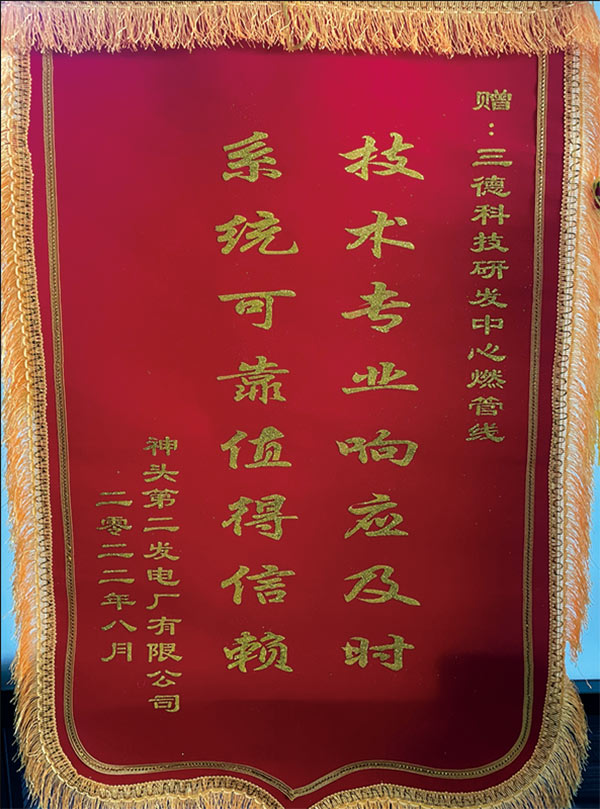 赠：三德科技研发中心燃管线
技术专业响应及时
系统可靠值得信赖
神头第二发电厂有限公司
二零二二年八月